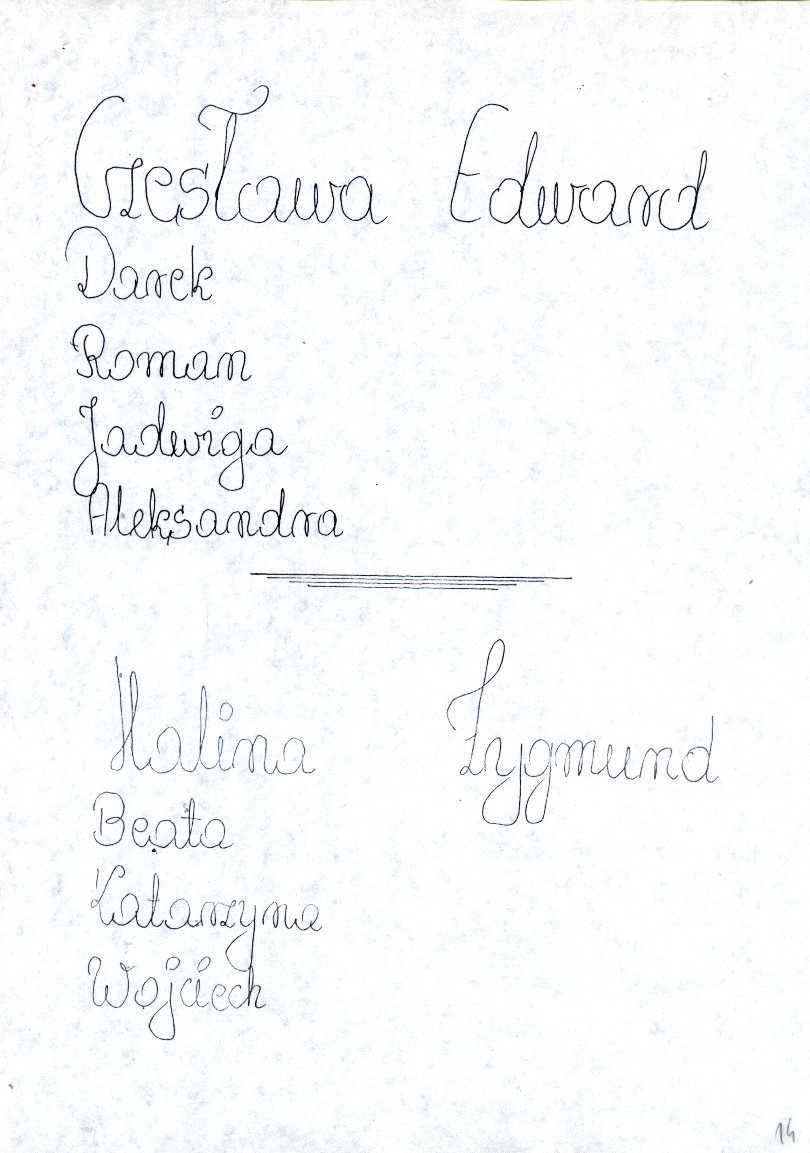 Czesława Edward
Darek
Roman
Jadwiga
Aleksandra
Halina Zygmund
Beata
Katarzyna
Wojciech
14